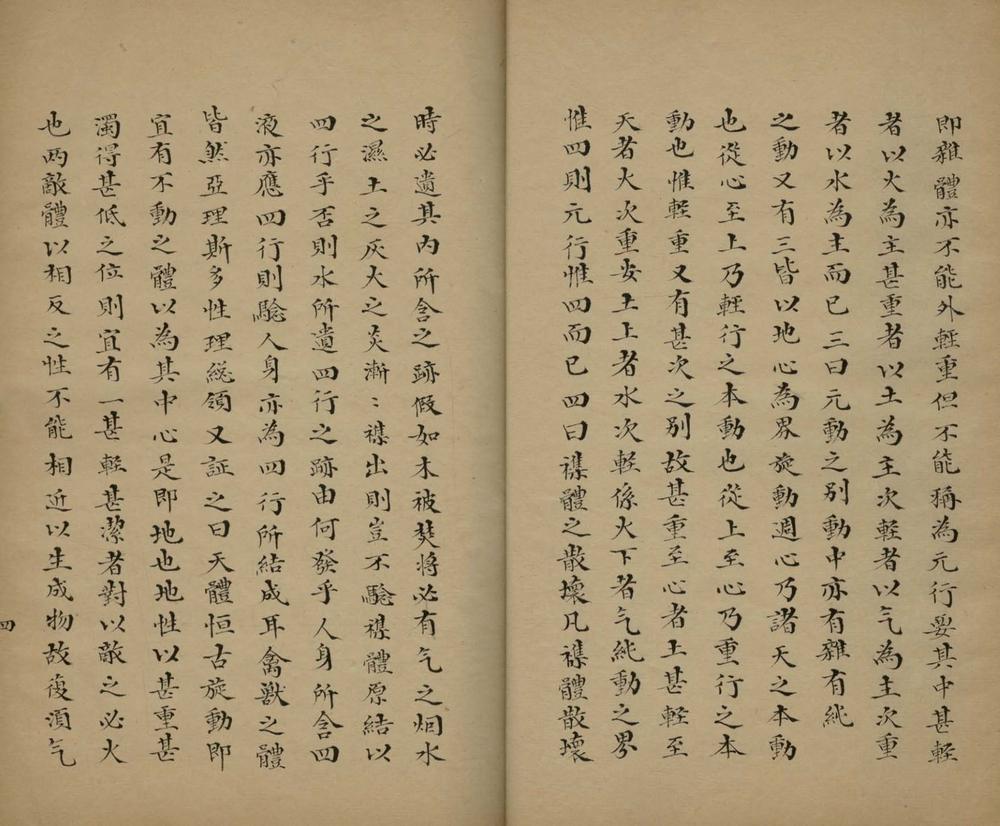 即雜體亦不能外輕重但不能稱為元行要其中甚輕
者以火為主甚重者以土為主次輕者以气為主次重
者以水為主而已三曰元動之別動中亦有雜有純
之動又有三皆以地心為界旋動週心乃諸天之本動
也從心至上乃輕行之本動也從上至心乃重行之本
動也惟輕重又有甚次之別故甚重至心者土甚輕至
天者火次重安土上者水次輕係火下者气純動之界
惟四則元行惟四而已四曰襍體之散壞凡襍體散壞
時必遺其內所含之跡假如木被焚將必有气之烟水
之濕土之灰火之炎漸〻襍出則豈不騐襍體原結以
四行乎否則水所遺四行之跡由何發乎人身所含四
液亦應四行則騐人身亦為四行所結成耳禽獸之體
皆然亞理斯多性理緫領又証之曰天體恒古旋動即
宜有不動之體以為其中心是即地也地性以甚重甚
濁得甚低之位則宜有一甚輕甚潔者對以敵之必火
也两敵體以相反之性不能相近以生成物故復湏气
四